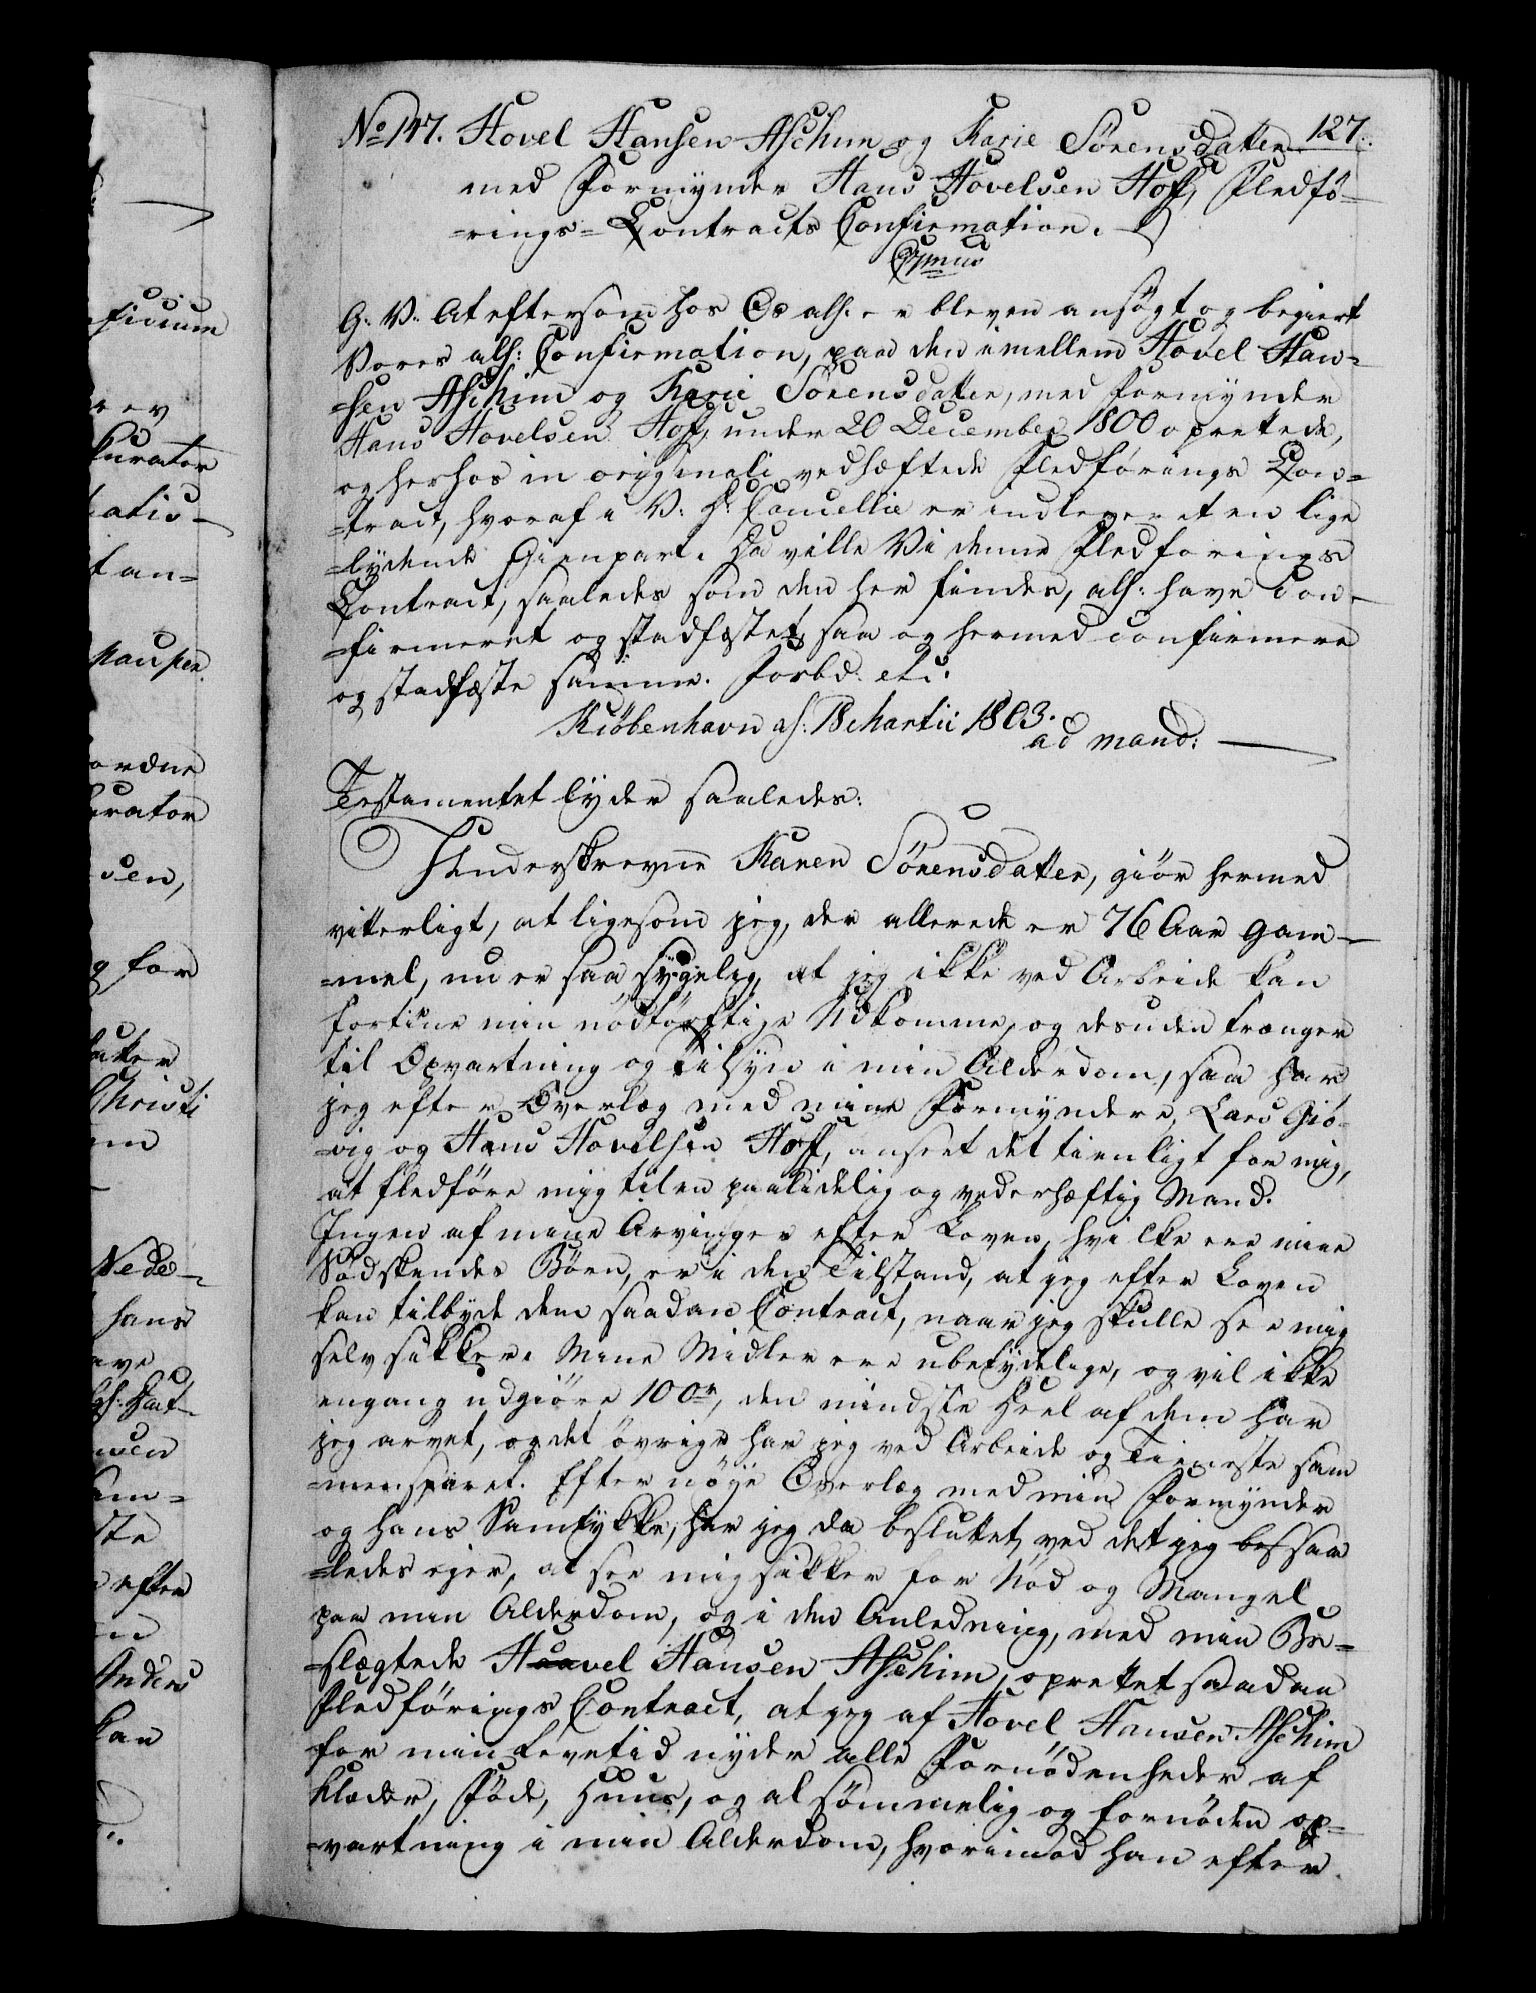 127.
No 147. Hovel Hansen Aschim og Karie Sörensdatter
med Formynder Hans Hovelsen Hoff, Fledfö-
-rings-Contracts Confirmation.
G: V: At eftersom hos Os als: er bleven ansögt og begiert
Vores als: Confirmation, paa den imellem Hovel Han-
-sen Aschim og Karie Sörensdatter, med Formynder
Hans Hovelsen Hoff, under 20 December 1800 oprettede,
og herhos in originali vedhæftede Fledförings Con-
-tract, hvoraf i V: D: Cancellie er indleveret en lige
-lydende Gienpart. Da ville Vi denne Fledförings
Contract, saaledes som den her findes, als: have con-
-firmeret og stadfæstet, saa og hermed confirmere
og stadfæste samme. Forbd: etc.
Kiöbenhavn d: 18 Martii 1803.
ad mand:
Testamentet lyder saaledes:
Underskrevne Karen Sörensdatter, giör hermed
vitterligt, at ligesom jeg, der allerede er 76 Aar gam-
-mel, nu er saa sygelig, at jeg ikke ved Arbeide kan
fortiene min nödtörftige Udkomme, og desuden trænger
til Opvartning og Tilsyn i min Alderdom, saa har
jeg efter Overlæg med mine Formyndere, Lars Giö-
-vig og Hans Hovelsen Hoff, anseet det tienligt for mig,
at fledföre mig til en paalidelig og vederhæftig Mand.
Ingen af mine Arvinger efter Loven, hvilke ere mine
Södskendes Börn, er i den Tilstand, at jeg efter Loven
kan tilbyde dem saadan Contract, naar jeg skulle see mig
selv sikker. Mine Midler ere ubetydelige, og vil ikke
engang udgiöre 100 r, den mindste Deel af dem har
jeg arvet, og det övrige har jeg ved Arbeide og Tieneste sam
-mensparet. Efter nöye Overlæg med min Formynder
og hans Samtykke, har jeg da besluttet, ved det jeg saa
-ledes ejer, at see mig sikker for Nöd og Mangel
paa min Alderdom, og i den Anledning, med min Be-
-slægtede Hovel Hansen Aschim, oprettet saadan
Fledförings Contract, at jeg af Hovel Hansen Aschim
for min Levetid nyder alle Fornödenheder af
Klæder, Föde, Huus, og al sömmelig og fornöden op-
-vartning i min Alderdom, hvorimod han efter